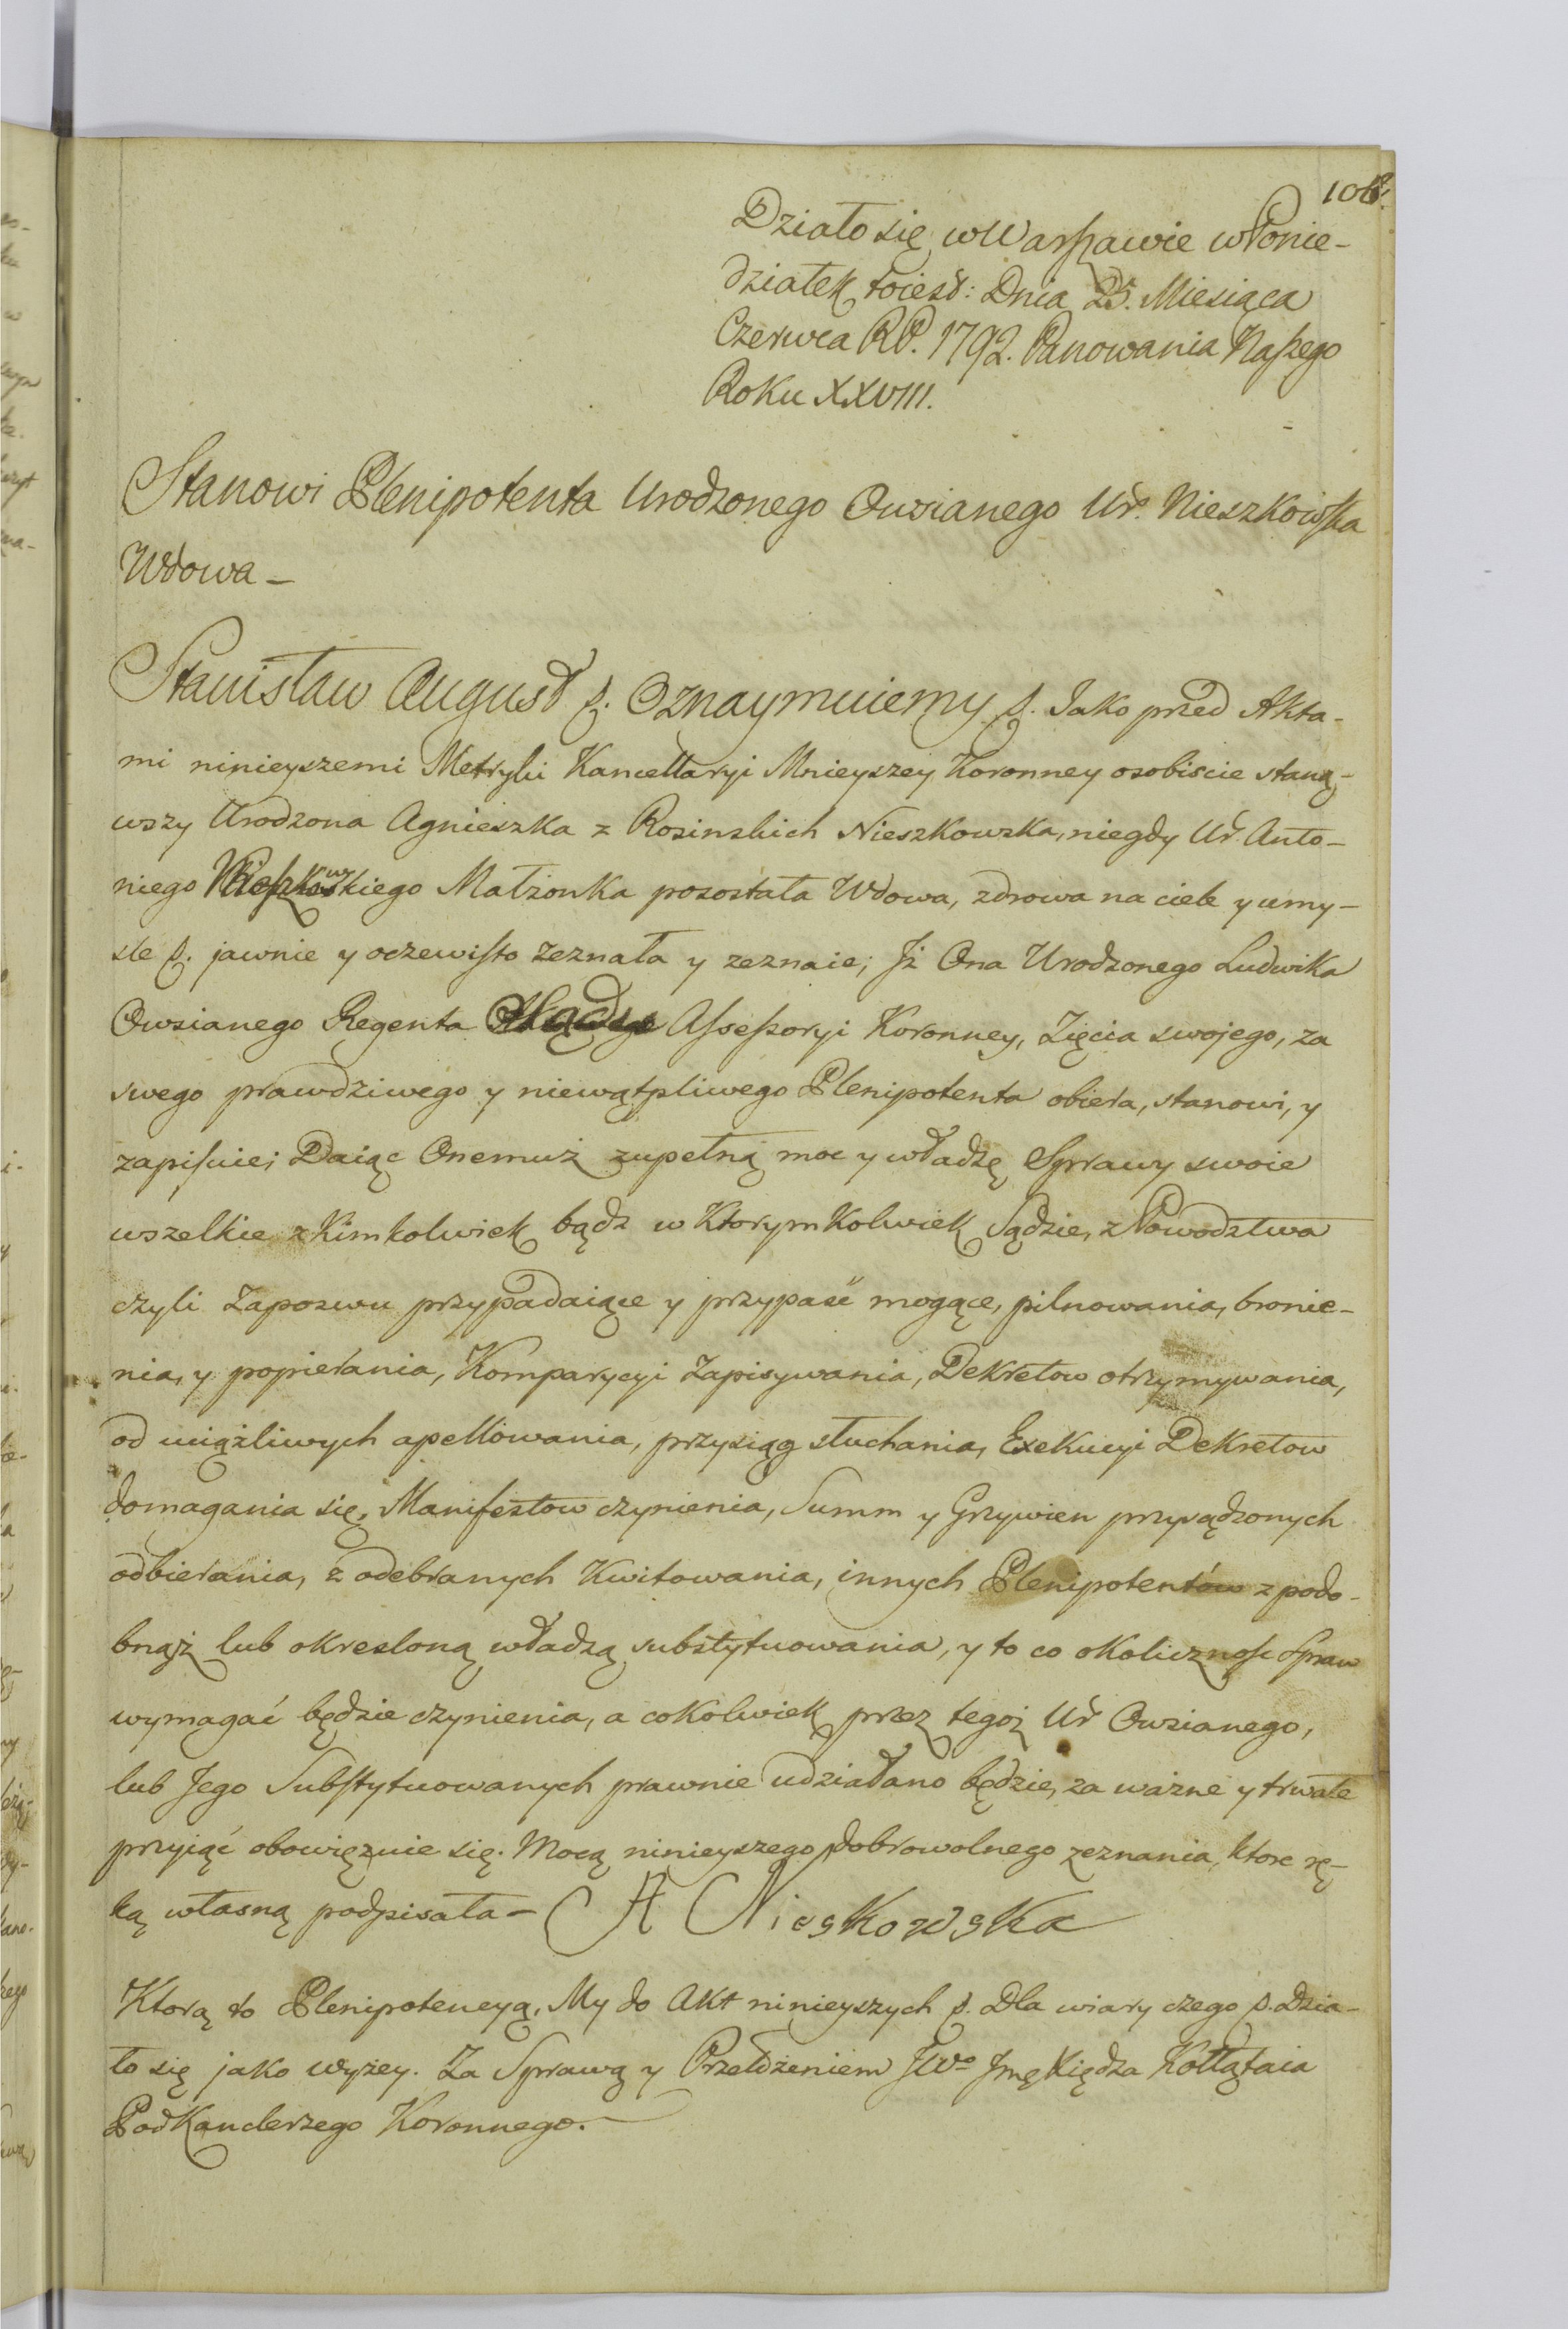 Działo się w Warszawie w Ponie-
działek to iest: Dnia 25. Miesiąca
Czerwca RP. 1792. Panowania Naszego
Roku XXVIII.
Stanowi Plenipotenta Urodzonego Owsianego Ur. Nieszkowska
Wdowa –
Stanisław August p. Oznaymuiemy p. Jako przed Akta-
mi ninieyszemi Metryki Kancellaryi Mnieyszey Koronney osobiscie staną-
wszy Urodzona Agnieszka z Rosinskich Nieszkowska, niegdy Ur. Anto-
niego Nieszkowskiego Małżonka pozostała Wdowa, zdrowa na ciele y umy-
sle p. jawnie y oczewisto zeznała y zeznaie; Jż Ona Urodzonego Ludwika
Owsianego Regenta Assessoryi Koronney, Zięcia swojego, za
swego prawdziwego y niewątpliwego Plenipotenta obiera, stanowi, y
zapisuie; Daiąc Onemuż zupełną moc y władzę Sprawy swoie
wszelkie z Kimkolwiek bądz w Ktorymkolwiek Sądzie, z Powodztwa
czyli Zapozwu przypadaiące y przypaść mogące, pilnowania, bronie-
nia, y popierania, Komparycyi Zapisywania, Dekretow otrzymywania,
od uciążliwych apellowania, przysiąg słuchania, Exekucyi Dekretow
domagania się, Manifestow czynienia, Summ y Grzywien przysądzonych
odbierania, z odebranych Kwitowania, innych Plenipotentów z podo-
bnąż lub okresloną władzą substytuowania, y to co okolicznosc Spraw
wymagać będzie czynienia, a cokolwiek przez tegoż Ur Owsianego,
lub Jego Substytuowanych prawnie udziałano będzie, za ważne y trwałe
przyjąć obowięzuie się. Mocą ninieyszego dobrowolnego zeznania, ktore rę-
ką własną podpisała – A Nieskowska
Ktorą to Plenipotencyą, My do Akt ninieyszych p. Dla wiary czego p. Dzia-
ło się jako wyżey. Za Sprawą y Przełożeniem JWo Jmę Xiędza Kołłątaia
PodKanclerzego Koronnego.